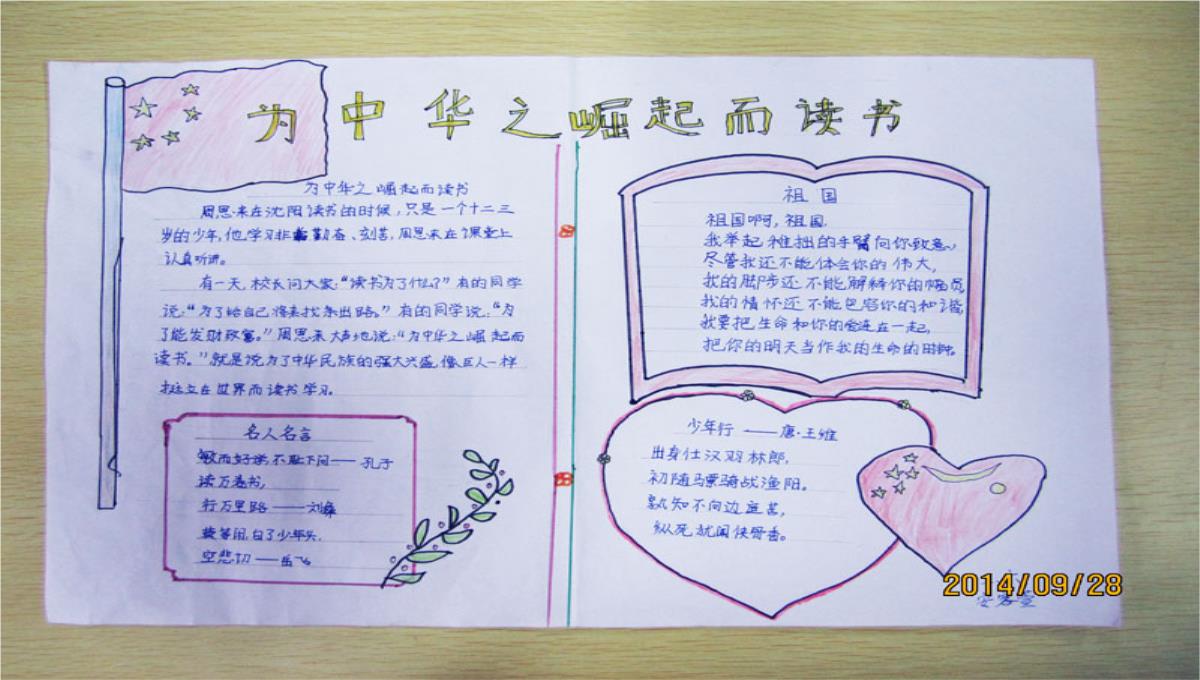 为中华之崛起而读书
为中华之崛起而读书
周恩来在沈阳读书的时候，只是一个十二三
岁的少年，他学习非常勤奋、刻苦，周恩来在课堂上
认真听讲。
有一天，校长问大家：“读书为了什么？”有的同学
说：“为了给自己将来找条出路。”有的同学说：“为
了能发财致富。”周恩来大声地说：“为中华之崛起而
读书。”就是说为了中华民族的强大兴盛，像巨人一样
挺立在世界而读书学习。
名人名言
敏而好学，不耻下问——孔子
读万卷书，
行万里路——刘彝
莫等闲，白了少年头，
空悲切——岳飞
祖国
祖国啊，祖国，
我举起稚拙的手臂向你致意，
尽管我还不能体会你的伟大，
我的脚步还不能解释你的幅员
我的情怀还不能包容你的和谐，
我要把生命和你的爱连在一起，
把你的明天当作我的生命的时钟。
少年行——唐·王维
出身仕汉羽林郎，
初随骠骑战渔阳。
孰知不向边庭苦，
纵死犹闻侠骨香。
2014/09/28